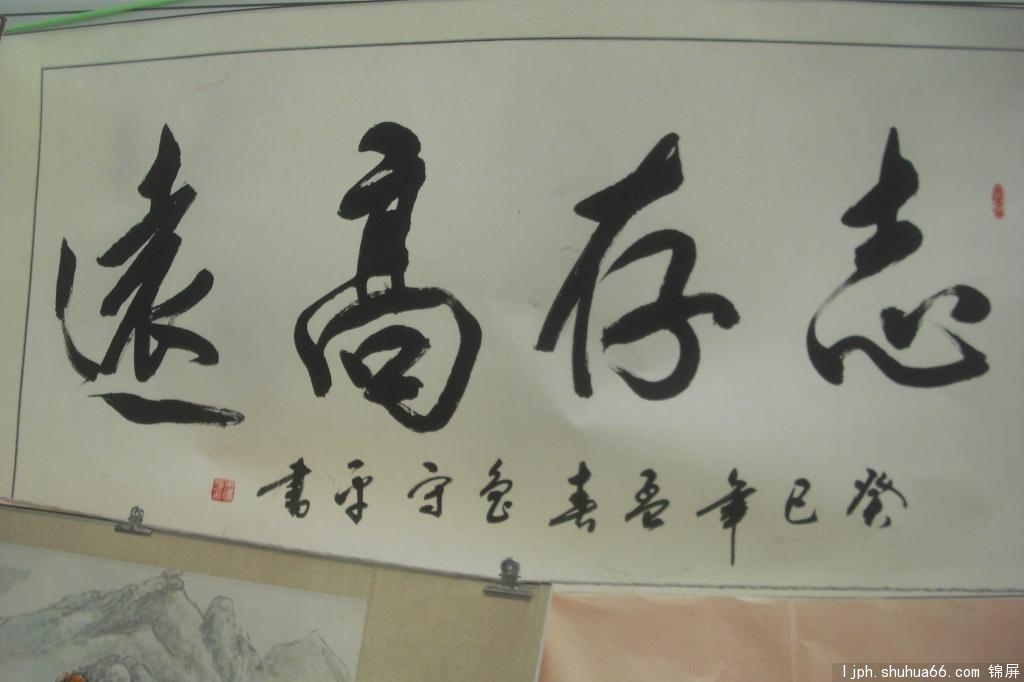 志存高遠
癸巳年孟春鱼守平書
ljph.shuhua66.com 锦屏